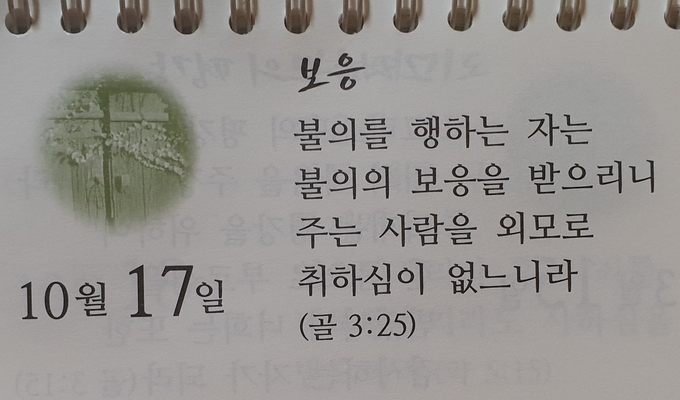 보응
불의를 행하는 자는
불의의 보응을 받으리니
주는 사람을 외모로
취하심이 없느니라
(골 3:25)
10월 17일